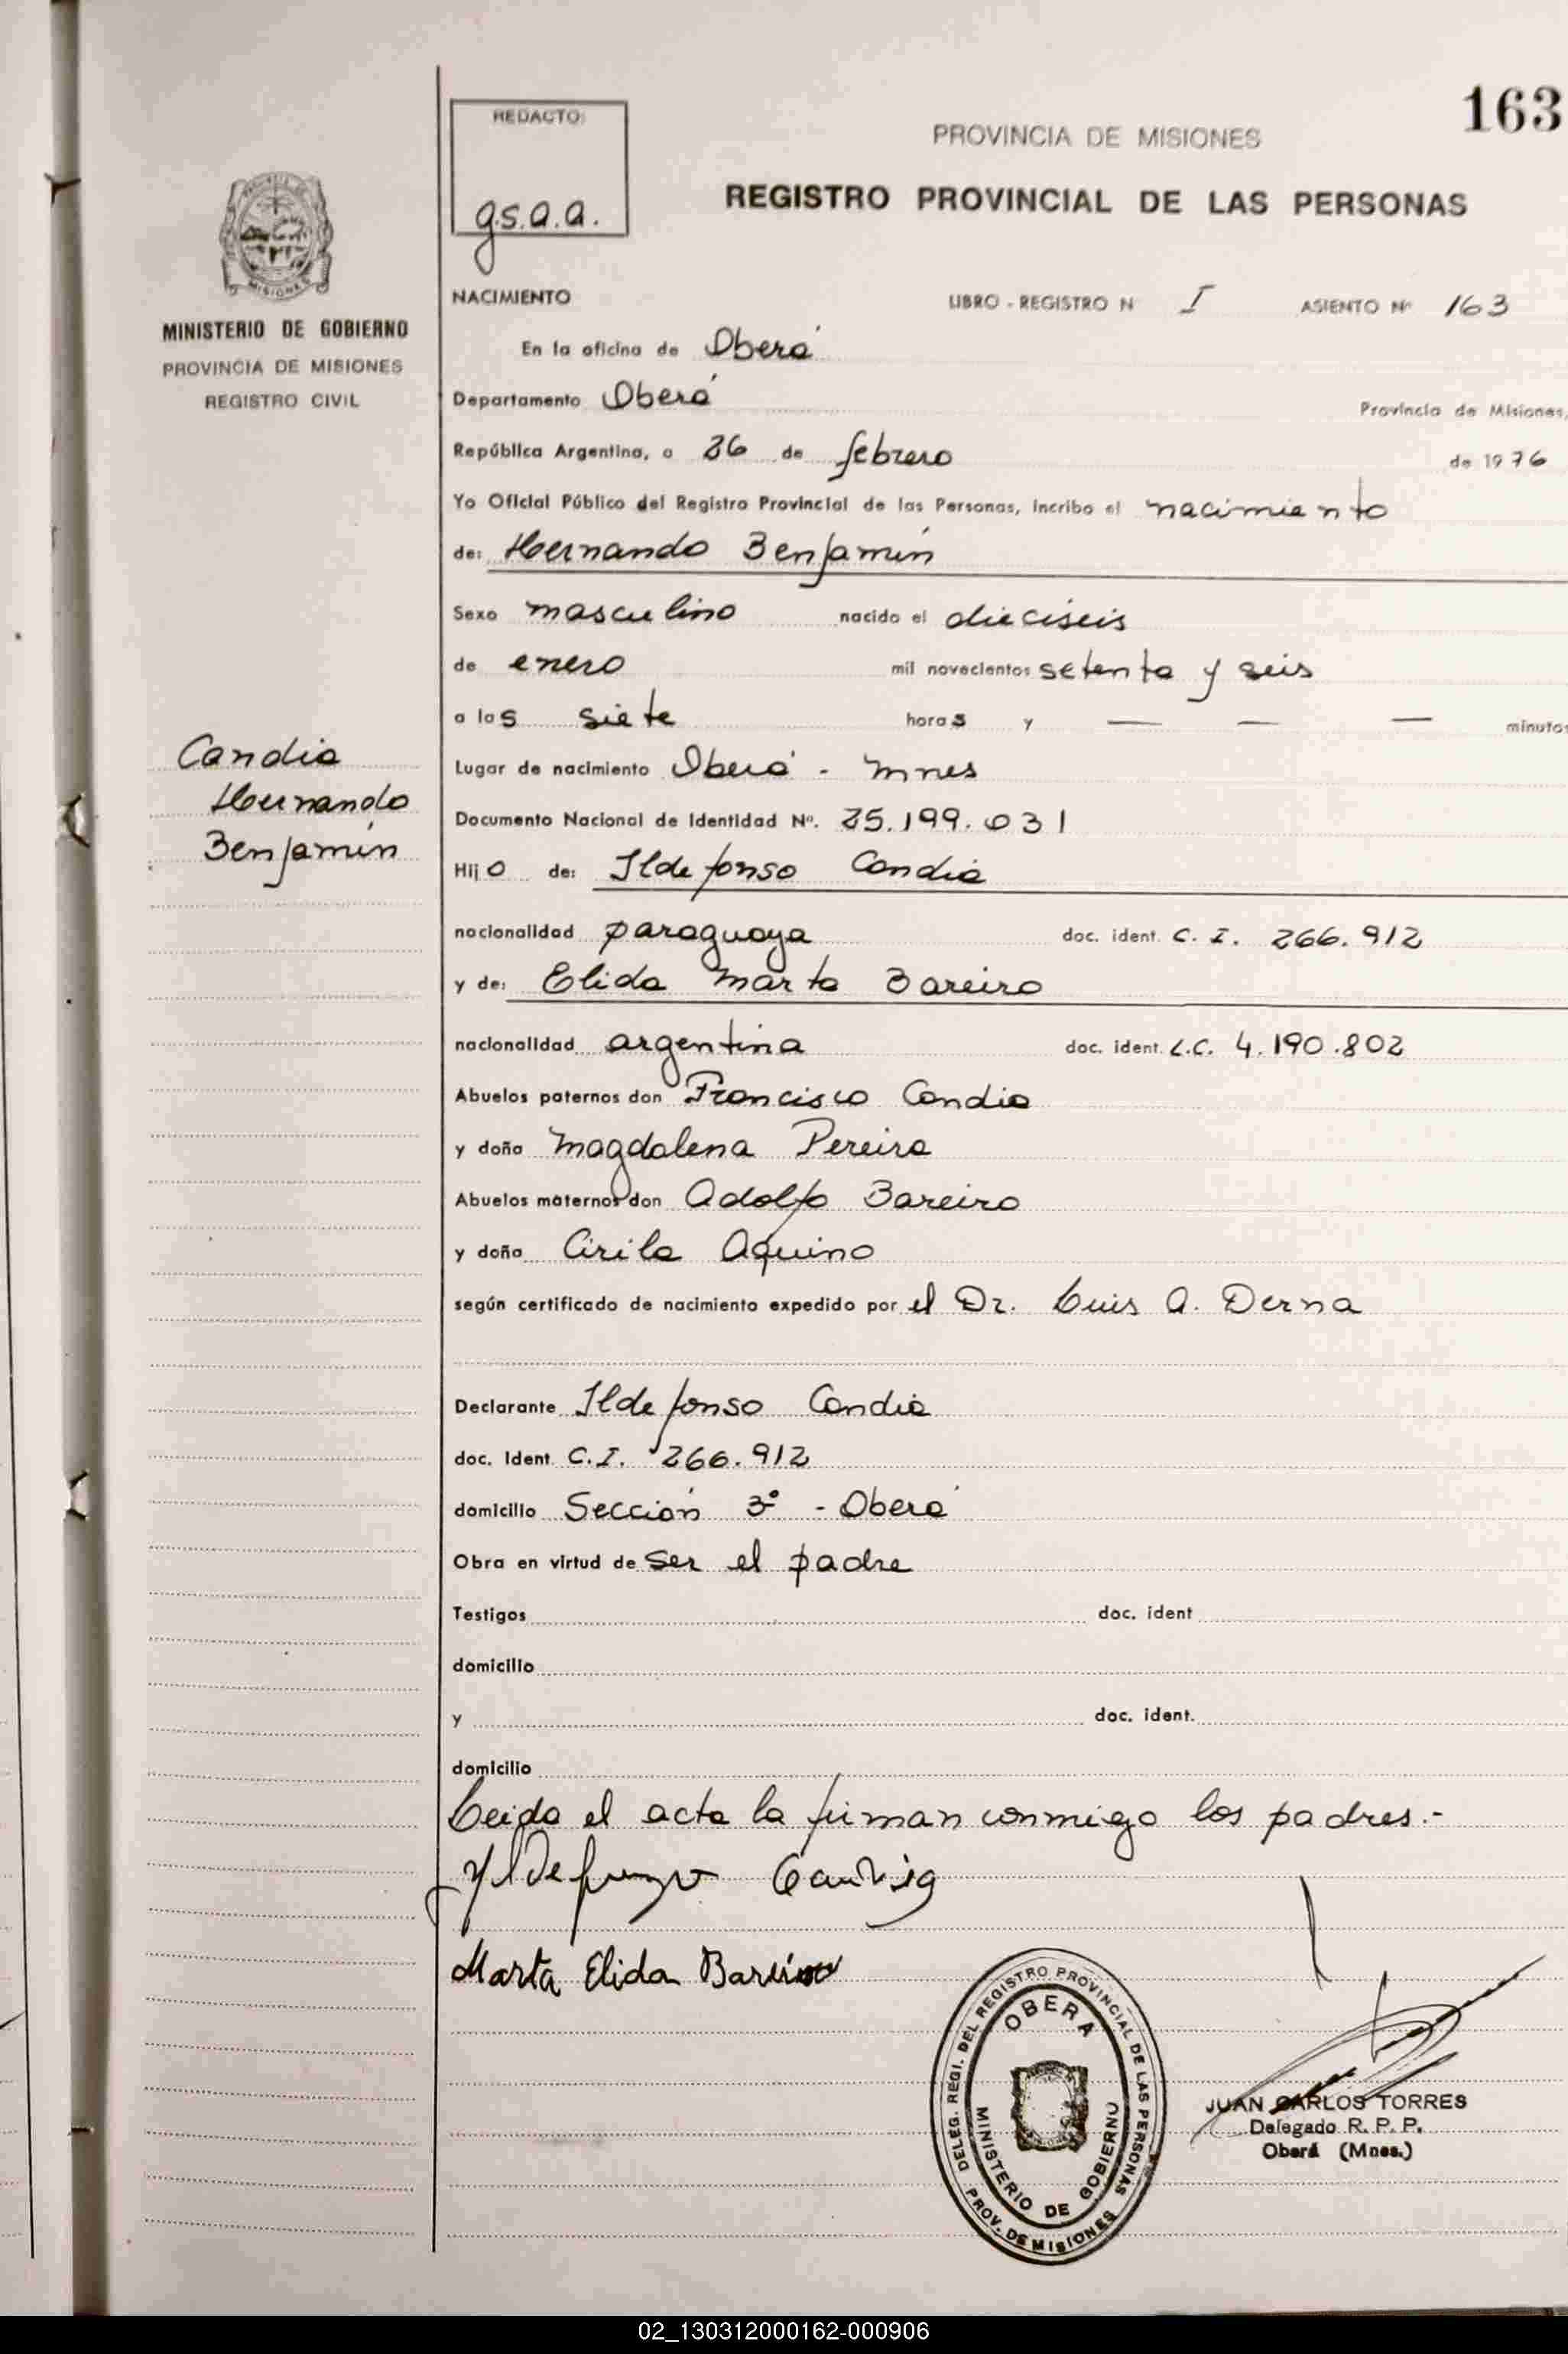 163
REDACTO:
g.s.a.a.
PROVINCIA DE MISIONES
REGISTRO PROVINCIAL DE LAS PERSONAS
MISIONES
MINISTERIO DE GOBIERNO
PROVINCIA DE MISIONES
REGISTRO CIVIL
NACIMIENTO LIBRO - REGISTRO N I ASIENTO Nº 163
En la oficina de Oberá
Departamento Oberá Provincia de Misiones,
República Argentina, a 26 de febrero de 1976
Yo Oficial Público del Registro Provincial de las Personas, incribo el nacimiento
de: Hernando Benjamín
Sexo masculino nacido el dieciseis
de enero mil novecientos setenta y seis
a las siete horas y — — — minutos
Candia
Hernando
Benjamín
Lugar de nacimiento Oberá - Mnes
Documento Nacional de Identidad Nº. 25.199.031
Hijo de: Ildefonso Candia
nacionalidad paraguaya doc. ident. C. I. 266.912
y de: Elida Marta Bareiro
nacionalidad argentina doc. ident. L.C. 4.190.802
Abuelos paternos don Francisco Candia
y doña Magdalena Pereira
Abuelos maternos don Adolfo Bareiro
y doña Cirila Aquino
según certificado de nacimiento expedido por el Dr. Luis A. Derna
Declarante Ildefonso Candia
doc. Ident. C.I. 266.912
domicilio Sección 3º - Oberá
Obra en virtud de ser el padre
Testigos doc. ident
domicilio
y doc. ident.
domicilio
Leida el acta la firman conmigo los padres.-
Yldefonzo Candia
Marta Elida Bareiro
DELEG. REGI. DEL REGISTRO PROVINCIAL DE LAS PERSONAS
OBERA
MINISTERIO DE GOBIERNO
PROV. DE MISIONES
JUAN CARLOS TORRES
Delegado R. P. P.
Oberá (Mnes.)
02_130312000162-000906